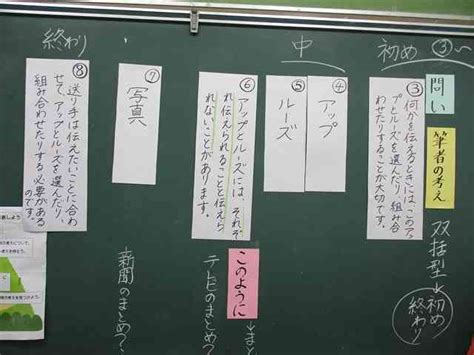 初め ③〜
問い
筆者の考え
双括型
初め
終わり
③
何かを伝えるときには、このアッ
プとルーズを選んだり、組み合
わせたりすることが大切です。
中
④
アップ
⑤
ルーズ
⑥
アップとルーズには、それぞ
れ伝えられることと伝えら
れないことがあります。
このように
→まと
テレビのまとめ?
⑦
写真
新聞のまとめ?
終わり
⑧
送り手は伝えたいことに合わ
せて、アップとルーズを選んだり、
組み合わせたりする必要がある
のです。